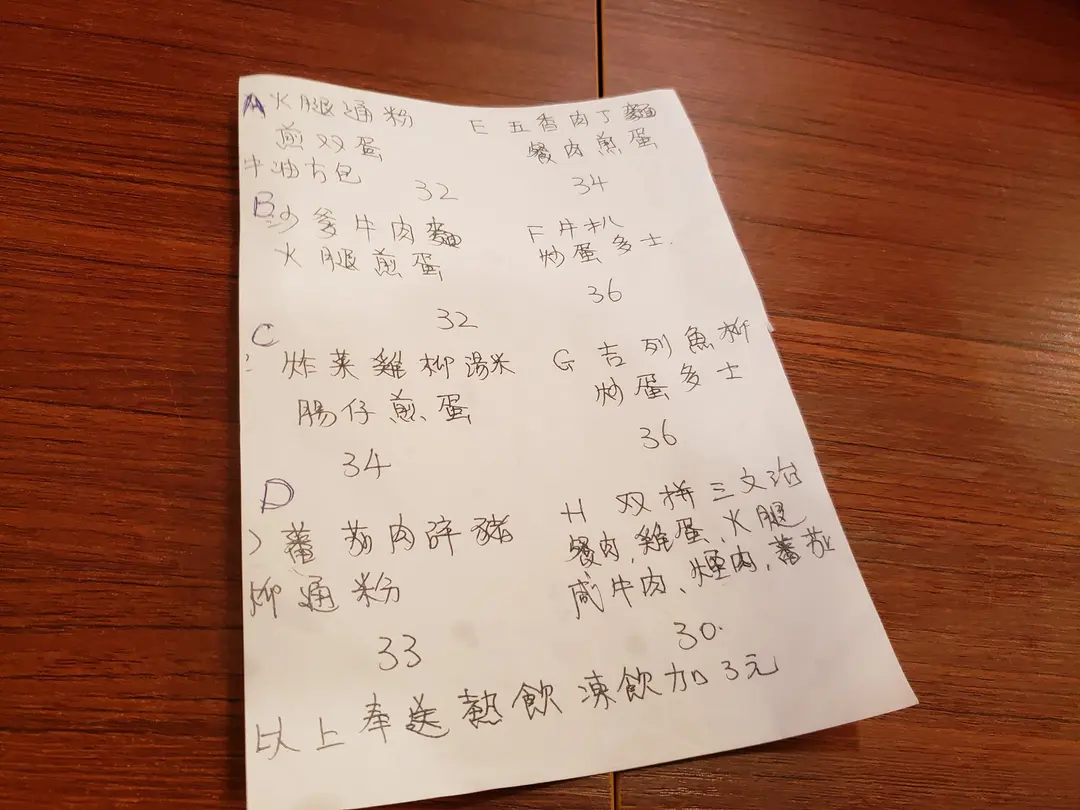 A 火腿通粉
煎双蛋
牛油方包
32
B
沙爹牛肉麵
火腿煎蛋
32
C
炸菜雞柳湯米
腸仔煎蛋
34
D
蕃茄肉碎豬
柳通粉
33
E 五香肉丁麵
餐肉煎蛋
34
F 牛扒
炒蛋多士
36
G 吉列魚柳
炒蛋多士
36
H 双拼三文治
餐肉,雞蛋、火腿
咸牛肉、煙肉,蕃茄
30
以上奉送熱飲凍飲加3元